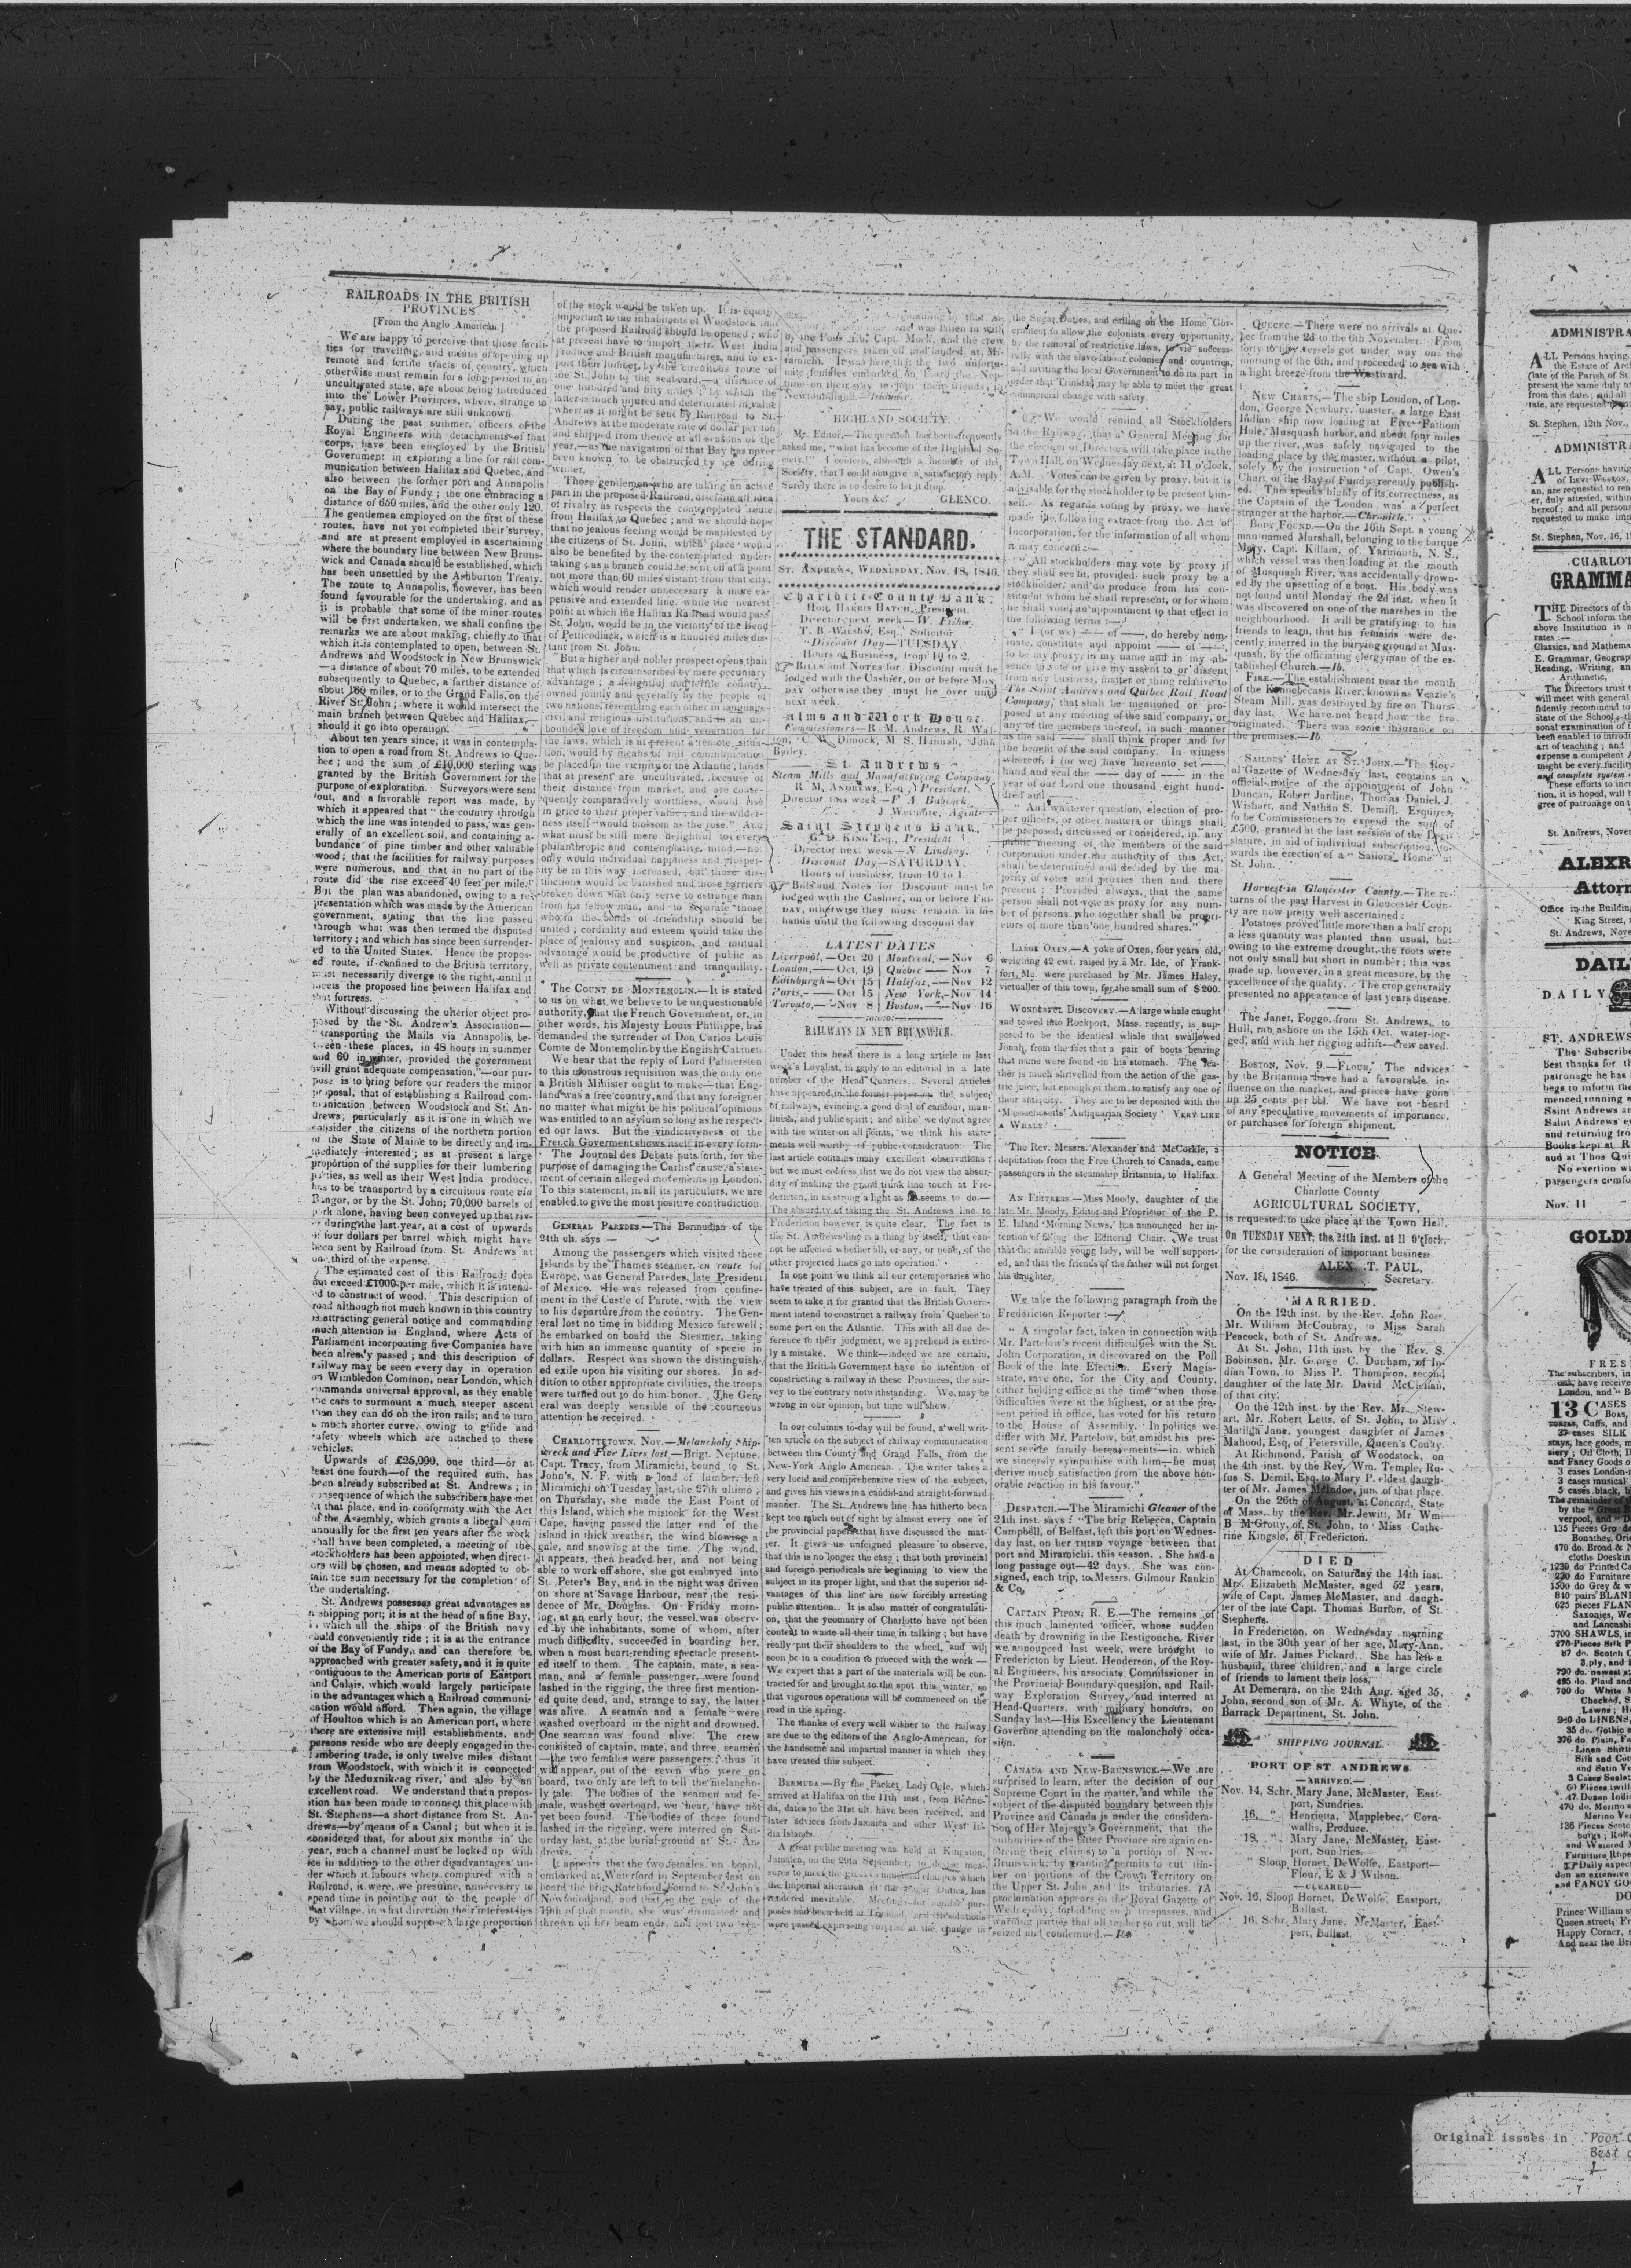 RAILROADS IN THE BRITISH
PROVINCES
[From the Anglo American.]
We are happy to perceive that those facili-
ties for travelling, and means of opening up
remote and fertile tracts of country, which
otherwise must remain for a long period in an
uncultivated state, are about being introduced
into the Lower Provinces, where, strange to
say, public railways are still unknown.
During the past summer, officers of the
Royal Engineers with detachments of that
corps, have been employed by the British
Government in exploring a line for rail com-
munication between Halifax and Quebec, and
also between the former port and Annapolis
on the Bay of Fundy; the one embracing a
distance of 650 miles, and the other only 120.
The gentlemen employed on the first of these
routes, have not yet completed their survey,
and are at present employed in ascertaining
where the boundary line between New Bruns-
wick and Canada should be established, which
has been unsettled by the Ashburton Treaty.
The route to Annapolis, however, has been
found favourable for the undertaking, and as
it is probable that some of the minor routes
will be first undertaken, we shall confine the
remarks we are about making, chiefly to that
which it is contemplated to open, between St.
Andrews and Woodstock in New Brunswick
—a distance of about 70 miles, to be extended
subsequently to Quebec, a farther distance of
about 180 miles, or to the Grand Falls, on the
River St. John; where it would intersect the
main branch between Quebec and Halifax,—
should it go into operation.
About ten years since, it was in contempla-
tion to open a road from St. Andrews to Que-
bec; and the sum of £10,000 sterling was
granted by the British Government for the
purpose of exploration. Surveyors were sent
out, and a favorable report was made, by
which it appeared that "the country through
which the line was intended to pass, was gen-
erally of an excellent soil, and containing a-
bundance of pine timber and other valuable
wood; that the facilities for railway purposes
were numerous, and that in no part of the
route did the rise exceed 40 feet per mile."
But the plan was abandoned, owing to a re-
presentation which was made by the American
government, stating that the line passed
through what was then termed the disputed
territory; and which has since been surrender-
ed to the United States. Hence the propos-
ed route, if confined to the British territory,
must necessarily diverge to the right, until it
meets the proposed line between Halifax and
that fortress.
Without discussing the ulterior object pro-
posed by the St. Andrew's Association—
"transporting the Mails via Annapolis, be-
tween these places, in 48 hours in summer
and 60 in winter, provided the government
will grant adequate compensation,"—our pur-
pose is to bring before our readers the minor
proposal, that of establishing a Railroad com-
munication between Woodstock and St. An-
drews; particularly as it is one in which we
consider the citizens of the northern portion
of the State of Maine to be directly and im-
mediately interested; as at present a large
proportion of the supplies for their lumbering
parties, as well as their West India produce,
has to be transported by a circuitous route via
Bangor, or by the St. John; 70,000 barrels of
pork alone, having been conveyed up that riv-
er during the last year, at a cost of upwards
of four dollars per barrel which might have
been sent by Railroad from St. Andrews at
one third of the expense.
The estimated cost of this Railroad does
not exceed £1000 per mile, which it is intend-
ed to construct of wood. This description of
road although not much known in this country
is attracting general notice and commanding
much attention in England, where Acts of
Parliament incorporating five Companies have
been already passed; and this description of
railway may be seen every day in operation
on Wimbledon Common, near London, which
commands universal approval, as they enable
the cars to surmount a much steeper ascent
than they can do on the iron rails; and to turn
a much shorter curve, owing to guide and
safety wheels which are attached to these
vehicles.
Upwards of £25,000, one third—or at
least one fourth—of the required sum, has
been already subscribed at St. Andrews; in
consequence of which the subscribers have met
at that place, and in conformity with the Act
of the Assembly, which grants a liberal sum
annually for the first ten years after the work
shall have been completed, a meeting of the
stockholders has been appointed, when direct-
ors will be chosen, and means adopted to ob-
tain the sum necessary for the completion of
the undertaking.
St. Andrews possesses great advantages as
a shipping port; it is at the head of a fine Bay,
in which all the ships of the British navy
could conveniently ride; it is at the entrance
of the Bay of Fundy, and can therefore be
approached with greater safety, and it is quite
contiguous to the American ports of Eastport
and Calais, which would largely participate
in the advantages which a Railroad communi-
cation would afford. Then again, the village
of Houlton which is an American port, where
there are extensive mill establishments, and
persons reside who are deeply engaged in the
lumbering trade, is only twelve miles distant
from Woodstock, with which it is connected
by the Meduxnikeag river, and also by an
excellent road. We understand that a propos-
ition has been made to connect this place with
St. Stephens—a short distance from St. An-
drews—by means of a Canal; but when it is
considered that, for about six months in the
year, such a channel must be locked up with
ice in addition to the other disadvantages un-
der which it labours when compared with a
Railroad, it were, we presume, unnecessary to
spend time in pointing out to the people of
that village, in what direction their interest lies
by whom we should suppose a large proportion
of the stock would be taken up. It is equally
important to the inhabitants of Woodstock that
the proposed Railroad should be opened; who
at present have to import their West India
produce and British manufactures, and to ex-
port their lumber, by the circuitous route of
the St. John to the seaboard,—a distance of
one hundred and fifty miles; by which the
latter is much injured and deteriorated in value
whereas it might be sent by Railroad to St.
Andrews at the moderate rate of dollar per ton
and shipped from thence at all seasons of the
year,—as the navigation of that Bay has never
been known to be obstructed by ice during
winter.
Those gentlemen who are taking an active
part in the proposed Railroad, disclaim all idea
of rivalry as respects the contemplated route
from Halifax to Quebec; and we should hope
that no jealous feeling would be manifested by
the citizens of St. John, which place would
also be benefited by the contemplated under-
taking; as a branch could be sent off at a point
not more than 60 miles distant from that city,
which would render unnecessary a more ex-
pensive and extended line, while the nearest
point at which the Halifax Railroad would pass
St. John, would be in the vicinity of the Bend
of Petticodiack, which is a hundred miles dis-
tant from St. John.
But a higher and nobler prospect opens than
that which is circumscribed by mere pecuniary
advantage; a delightful and fertile country,
owned jointly and severally by the people of
two nations, resembling each other in language
civil and religious institutions, and in an un-
bounded love of freedom and veneration for
the laws, which is at present a remote situa-
tion, would by means of rail communication
be placed in the vicinity of the Atlantic; lands
that at present are uncultivated, because of
their distance from market, and are conse-
quently comparatively worthless, would rise
in price to their proper value; and the wilder-
ness itself "would blossom as the rose." And
what must be still more delightful to every
philanthropic and contemplative mind,—not
only would individual happiness and prosper-
ity be in this way increased, but those dis-
tinctions would be banished and those barriers
broken down that only serve to estrange man
from his fellow man, and to separate those
whom the bonds of friendship should be
united; cordiality and esteem would take the
place of jealousy and suspicion, and mutual
advantage would be productive of public as
well as private contentment and tranquillity.
THE COUNT DE MONTEMOLIN.—It is stated
to us on what we believe to be unquestionable
authority, that the French Government, or, in
other words, his Majesty Louis Phillippe, has
demanded the surrender of Don Carlos Louis
Comte de Montemolin by the English Cabinet.
We hear that the reply of Lord Palmerston
to this monstrous requisition was the only one
a British Minister ought to make—that Eng-
land was a free country, and that any foreigner
no matter what might be his political opinions
was entitled to an asylum so long as he respect-
ed our laws. But the vindictiveness of the
French Goverment shows itself in every form.
The Journal des Debats puts forth, for the
purpose of damaging the Carlist cause, a state-
ment of certain alleged movements in London.
To this statement, in all its particulars, we are
enabled to give the most positive contradiction.
GENERAL PAREDES.—The Bermudian of the
24th ult. says:—
Among the passengers which visited these
Islands by the Thames steamer, en route for
Europe, was General Paredes, late President
of Mexico. He was released from confine-
ment in the Castle of Parote, with the view
to his departure from the country. The Gen-
eral lost no time in bidding Mexico farewell;
he embarked on board the Steamer, taking
with him an immense quantity of specie in
dollars. Respect was shown the distinguish-
ed exile upon his visiting our shores. In ad-
dition to other appropriate civilities, the troops
were turned out to do him honor. The Gen-
eral was deeply sensible of the courteous
attention he received.
CHARLOTTETOWN, NOV.—Melancholy Ship-
wreck and Five Lives lost.—Brigt. Neptune,
Capt. Tracy, from Miramichi, bound to St.
John's, N. F. with a load of lumber, left
Miramichi on Tuesday last, the 27th ultimo;
on Thursday, she made the East Point of
this Island, which she mistook for the West
Cape, having passed the latter end of the
island in thick weather, the wind blowing a
gale, and snowing at the time. The wind,
it appears, then headed her, and not being
able to work off shore, she got embayed into
St. Peter's Bay, and in the night was driven
on shore at Savage Harbour, near the resi-
dence of Mr. Douglas. On Friday morn-
ing, at an early hour, the vessel was observ-
ed by the inhabitants, some of whom, after
much difficulty, succeeded in boarding her,
when a most heart-rending spectacle present-
ed itself to them. The captain, mate, a sea-
man, and a female passenger, were found
lashed in the rigging, the three first mention-
ed quite dead, and, strange to say, the latter
was alive. A seaman and a female were
washed overboard in the night and drowned.
One seaman was found alive. The crew
consisted of captain, mate, and three seamen
—the two females were passengers; thus it
will appear, out of the seven who were on
board, two only are left to tell the melancho-
ly tale. The bodies of the seamen and fe-
male, washed overboard, we hear, have not
yet been found. The bodies of those found
lashed in the rigging, were interred on Sat-
urday last, at the burial-ground at St. An-
drews.
It appears that the two females on board,
embarked at Waterford in September last on
board the brig Ratchford, bound to St. John's
Newfoundland, and that in the gale of the
19th of that month, she was dismasted and
thrown on her beam ends, and lost two sea-
and was fallen in with
by the Capt. Mock, and the crew
and passengers taken off and landed at Mi-
ramichi. It was here that the two unfortu-
nate females embarked on board the Nep-
tune on their way to join their friends, in
Newfoundland.—Islander.
HIGHLAND SOCIETY.
Mr. Editor,—The question has been frequently
asked me, "what has become of the Highland So-
ciety?" I confess, although a member of the
Society, that I could not give a satisfactory reply.
Surely there is no desire to let it drop.
Yours &c! GLENCO.
THE STANDARD.
ST. ANDREWS, WEDNESDAY, NOV. 18, 1846.
Charlotte County Bank.
HON. HARRIS HATCH, President.
Director next week—W. Fisher.
T. B. WILSON, Esq., Solicitor
Discount Day—TUESDAY.
Hours of Business, from 10 to 2.
BILLS and NOTES for Discount must be
lodged with the Cashier, on or before MON-
DAY otherwise they must lie over until
next week.
Alms and Work House.
Commissioners—R. M. Andrews, R. Wal-
ton, W. Dimock, M. S. Hannah, John
Bailey.
St Andrews
Steam Mills and Manufacturing Company
R. M. ANDREWS, Esq., President.
Director this week—F. A. Babcock.
J. Wetmore, Agent
Saint Stephens Bank.
G. D. KING Esq., President.
Director next week—N. Lindsay.
Discount Day—SATURDAY.
Hours of business, from 10 to 1.
Bills and Notes for Discount must be
lodged with the Cashier, on or before FRI-
DAY, otherwise they must remain in his
hands until the following discount day
LATEST DATES
Liverpool,—Oct 20 | Montreal,—Nov 6
London,—Oct 19 | Quebec—Nov 7
Edinburgh—Oct 15 | Halifax,—Nov 12
Paris,—Oct 15 | New York,—Nov 14
Toronto,—Nov 8 | Boston,—Nov 16
RAILWAYS IN NEW BRUNSWICK.
Under this head there is a long article in last
week's Loyalist, in reply to an editorial in a late
number of the Head Quarters. Several articles
have appeared in the former paper on the subject
of railways, evincing a good deal of candour, man-
liness, and public spirit; and altho' we do not agree
with the writer on all points, we think his state-
ments well worthy of public consideration. The
last article contains many excellent observations;
but we must confess that we do not view the absur-
dity of making the grand trunk line touch at Fre-
dericton, in as strong a light as he seems to do.—
The absurdity of taking the St. Andrews line to
Fredericton however, is quite clear. The fact is
the St. Andrews line is a thing by itself, that can-
not be affected whether all, or any, or none, of the
other projected lines go into operation.
In one point we think all our cotemporaries who
have treated of this subject, are in fault. They
seem to take it for granted that the British Govern-
ment intend to construct a railway from Quebec to
some port on the Atlantic. This with all due de-
ference to their judgment, we apprehend is entire-
ly a mistake. We think—indeed we are certain,
that the British Government have no intention of
constructing a railway in these Provinces, the sur-
vey to the contrary notwithstanding. We may be
wrong in our opinion, but time will shew.
In our columns to-day will be found, a well writ-
ten article on the subject of railway communication
between this County and Grand Falls, from the
New-York Anglo American. The writer takes a
very lucid and comprehensive view of the subject,
and gives his views in a candid and straight-forward
manner. The St. Andrews line has hitherto been
kept too much out of sight by almost every one of
the provincial papers that have discussed the mat-
ter. It gives us unfeigned pleasure to observe,
that this is no longer the case; that both provincial
and foreign periodicals are beginning to view the
subject in its proper light, and that the superior ad-
vantages of this line are now forcibly arresting
public attention. It is also a matter of congratulati-
on, that the yeomanry of Charlotte have not been
content to waste all their time in talking; but have
really put their shoulders to the wheel, and will
soon be in a condition to proceed with the work—
We expect that a part of the materials will be con-
tracted for and brought to the spot this winter, so
that vigorous operations will be commenced on the
road in the spring.
The thanks of every well wisher to the railway
are due to the editors of the Anglo-American, for
the handsome and impartial manner in which they
have treated this subject.
BERMUDA.—By the Packet Lady Ogle, which
arrived at Halifax on the 11th inst, from Bermu-
da, dates to the 31st ult. have been received, and
later advices from Jamaica and other West In-
dia Islands.
A great public meeting was held at Kingston,
Jamaica, on the 29th September, to devise mea-
sures to meet the great commercial changes which
the Imperial alteration of the Sugar Duties, has
rendered inevitable. Meetings for similar pur-
poses had been held at Trinidad, and Resolutions
were passed expressing surprise at the change in
the Sugar Duties, and calling on the Home Gov-
ernment to allow the colonists every opportunity,
by the removal of restrictive laws, to vie success-
fully with the slave-labour colonies and countries,
and inviting the local Government to do its part in
order that Trinidad may be able to meet the great
commercial change with safety.
We would remind all Stockholders
in the Railway, that a General Meeting for
the election of Directors, will take place in the
Town Hall, on Wednesday next, at 11 o'clock,
A.M. Votes can be given by proxy, but it is
advisable for the stockholder to be present him-
self.—As regards voting by proxy, we have
made the following extract from the Act of
Incorporation, for the information of all whom
it may concern:—
"All stockholders may vote by proxy if
they shall see fit, provided such proxy be a
stockholder, and do produce from his con-
stituent whom he shall represent, or for whom
he shall vote, an appointment to that effect in
the following terms:—
"I (or we) —— of ——, do hereby nom-
inate, constitute and appoint —— of ——,
to be my proxy, in my name and in my ab-
sence to vote or give my assent to or dissent
from any business, matter or thing relative to
The Saint Andrews and Quebec Rail Road
Company, that shall be mentioned or pro-
posed at any meeting of the said company, or
any of the members thereof, in such manner
as the said —— shall think proper and for
the benefit of the said company. In witness
whereof, I (or we) have hereunto set ——
hand and seal the —— day of —— in the
year of our Lord one thousand eight hun-
dred and ——
"And whatever question, election of pro-
per officers, or other matters or things shall
be proposed, discussed or considered, in any
public meeting of the members of the said
corporation under the authority of this Act,
shall be determined and decided by the ma-
jority of votes and proxies then and there
present: Provided always, that the same
person shall not vote as proxy for any num-
ber of persons who together shall be propri-
etors of more than one hundred shares."
LARGE OXEN.—A yoke of Oxen, four years old,
weighing 42 cwt. raised by a Mr. Ide, of Frank-
fort, Me. were purchased by Mr. James Haley,
victualler of this town, for the small sum of $200.
WONDERFUL DISCOVERY.—A large whale caught
and towed into Rockport, Mass. recently, is sup-
posed to be the identical whale that swallowed
Jonah, from the fact that a pair of boots bearing
that name were found in his stomach. The lea-
ther is much shrivelled from the action of the gas-
tric juice, but enough of them to satisfy any one of
their antiquity. They are to be deposited with the
'Massachusetts' Antiquarian Society' VERY LIKE
A WHALE!
The Rev. Messrs. Alexander and McCorkle, a
deputation from the Free Church to Canada, came
passengers in the steamship Britannia, to Halifax.
AN EDITRESS.—Miss Moody, daughter of the
late Mr. Moody, Editor and Proprietor of the P.
E. Island 'Morning News,' has announced her in-
tention of filling the Editorial Chair. We trust
that the amiable young lady, will be well support-
ed, and that the friends of the father will not forget
his daughter.
We take the following paragraph from the
Fredericton Reporter:—
"A singular fact, taken in connection with
Mr. Partelow's recent difficulties with the St.
John Corporation, is discovered on the Poll
Book of the late Election. Every Magis-
strate, save one, for the City and County,
either holding office at the time when those
difficulties were at the highest, or at the pre-
sent period in office, has voted for his return
to the House of Assembly. In politics we
differ with Mr. Partelow, but amidst his pre-
sent severe family bereavements—in which
we sincerely sympathise with him—he must
derive much satisfaction from the above hon-
orable reaction in his favour."
DESPATCH.—The Miramichi Gleaner of the
24th inst. says: "The brig Rebecca, Captain
Campbell, of Belfast, left this port on Wednes-
day last, on her THIRD voyage between that
port and Miramichi, this season. She had a
long passage out—42 days. She was con-
signed, each trip, to Messrs. Gilmour Rankin
& Co.
CAPTAIN PIPON, R. E.—The remains of
this much lamented officer, whose sudden
death by drowning in the Restigouche River
we announced last week, were brought to
Fredericton by Lieut. Henderson, of the Roy-
al Engineers, his associate Commissioner in
the Provincial Boundary question, and Rail-
way Exploration Survey, and interred at
Head-Quarters, with military honours, on
Sunday last—His Excellency the Lieutenant
Governor attending on the maloncholy occa-
sion.
CANADA AND NEW-BRUNSWICK.—We are
surprised to learn, after the decision of our
Supreme Court in the matter, and while the
subject of the disputed boundary between this
Province and Canada is under the considera-
tion of Her Majesty's Government, that the
authorities of the latter Province are again en-
forcing their claims to a portion of New-
Brunswick, by granting permits to cut tim-
ber on portions of the Crown Territory on
the Upper St. John and its tributaries. A
proclamation appears in the Royal Gazette of
Wednesday, forbidding such trespasses, and
warning parties that all timber so cut, will be
seized and condemned.—Ib.
QUEBEC.—There were no arrivals at Que-
bec from the 2d to the 6th November. From
forty to fifty vessels got under way on the
morning of the 6th, and proceeded to sea with
a light breeze from the Westward.
NEW CHARTS.—The ship London, of Lon-
don, George Newbury, master, a large East
Indian ship now loading at Five Fathom
Hole, Musquash harbor, and about four miles
up the river, was safely navigated to the
loading place by the master, without a pilot,
solely by the instruction of Capt. Owen's
Chart, of the Bay of Fundy, recently publish-
ed. This speaks highly of its correctness, as
the Captain of the London was a perfect
stranger at the harbor.—Chronicle.
BODY FOUND.—On the 16th Sept. a young
man named Marshall, belonging to the barque
Mary, Capt. Killam, of Yarmouth, N. S.,
which vessel was then loading at the mouth
of Musquash River, was accidentally drown-
ed by the upsetting of a boat. His body was
not found until Monday the 2d inst. when it
was discovered on one of the marshes in the
neighbourhood. It will be gratifying to his
friends to learn, that his remains were de-
cently interred in the burying ground at Mus-
quash, by the officiating clergyman of the es-
tablished Church.—Ib.
FIRE.—The establishment near the mouth
of the Kennebecasis River, known as Veazie's
Steam Mill, was destroyed by fire on Thurs-
day last. We have not heard how the fire
originated. There was some insurance on
the premises.—Ib.
SAILORS' HOME AT ST. JOHN.—The Roy-
al Gazette of Wednesday last, contains an
official notice of the appointment of John
Duncan, Robert Jardine, Thomas Daniel, J.
Wishart, and Nathan S. Demill, Esquires,
to be Commissioners to expend the sum of
£500, granted at the last session of the Legi-
slature, in aid of individual subscription, to-
wards the erection of a "Sailors' Home" at
St. John.
Harvest in Gloucester County.—The re-
turns of the past Harvest in Gloucester Coun-
ty are now pretty well ascertained:
Potatoes proved little more than a half crop;
a less quantity was planted than usual, but
owing to the extreme drought, the roots were
not only small but short in number; this was
made up, however, in a great measure, by the
excellence of the quality. The crop generally
presented no appearance of last years disease.
The Janet, Foggo, from St. Andrews, to
Hull, ran ashore on the 15th Oct. water-log-
ged, and with her rigging adrift—crew saved.
BOSTON, NOV. 9.—FLOUR. The advices
by the Britannia have had a favourable in-
fluence on the market, and prices have gone
up 25 cents per bbl. We have not heard
of any speculative movements of importance,
or purchases for foreign shipment.
NOTICE
A General Meeting of the Members of the
Charlotte County
AGRICULTURAL SOCIETY,
is requested to take place at the Town Hall,
ON TUESDAY NEXT, the 24th inst. at 11 O'clock,
for the consideration of important business
ALEX. T. PAUL,
Nov. 18, 1846. Secretary.
MARRIED.
On the 12th inst. by the Rev. John Ross,
Mr. William McCoubray, to Miss Sarah
Peacock, both of St. Andrews.
At St. John, 11th inst. by the Rev. S.
Robinson, Mr. George C. Dunham, of In-
dian Town, to Miss P. Thompson, second
daughter of the late Mr. David McClellan,
of that city.
On the 12th inst. by the Rev. Mr. Stew-
art, Mr. Robert Letts, of St. John, to Miss
Matilda Jane, youngest daughter of James
Mahood, Esq, of Petersville, Queen's County.
At Richmond, Parish of Woodstock, on
the 4th inst. by the Rev. Wm. Temple, Ru-
fus S. Demil, Esq. to Mary P. eldest daugh-
ter of Mr. James McIndoe, jun. of that place.
On the 26th of August, at Concord, State
of Mass. by the Rev. Mr. Jewitt, Mr. Wm.
B M'Grotty, of St. John, to Miss Cathe-
rine Kingslo, of Fredericton.
DIED
At Chamcook, on Saturday the 14th inst.
Mrs. Elizabeth McMaster, aged 52 years,
wife of Capt. James McMaster, and daugh-
ter of the late Capt. Thomas Burton, of St.
Stephens.
In Fredericton, on Wednesday morning
last, in the 30th year of her age, Mary-Ann,
wife of Mr. James Pickard. She has left a
husband, three children, and a large circle
of friends to lament their loss.
At Demerara, on the 24th Aug. aged 35,
John, second son of Mr. A. Whyte, of the
Barrack Department, St. John.
SHIPPING JOURNAL
PORT OF ST ANDREWS
—ARRIVED.—
Nov. 14, Schr. Mary Jane, McMaster, East-
port, Sundries.
16, " Henrietta, Mapplebec, Corn-
wallis, Produce.
18, " Mary Jane, McMaster, East-
port, Sundries.
" Sloop Hornet, DeWolfe, Eastport—
Flour, E & J Wilson.
—CLEARED—
Nov. 16, Sloop Hornet, DeWolfe, Eastport,
Ballast.
16, Schr. Mary Jane, McMaster, East-
port, Ballast.
ADMINISTRA
ALL Persons having
the Estate of Arc
(late of the Parish of St.
present the same duly at
from this date; and all
tate, are requested
St. Stephen, 12th Nov.,
ADMINISTRA
ALL Persons having
of
an, are requested to ren
er, duly attested, within
hereof; and all persons
requested to make imm
St. Stephen, Nov. 16, 1
CHARLOT
GRAMMA
THE Directors of th
School inform the
above Institution is n
rates:—
Classics, and Mathema
E. Grammar, Geograp
Reading, Writing, an
Arithmetic,
The Directors trust t
will meet with general
fidently recommend to
state of the School; th
sonal examination of t
been enabled to introdu
art of teaching; and
expense a competent A
might be every facility
and complete system
These efforts to incr
tion, it is hoped, will t
gree of patronage on t
St. Andrews, Nover
ALEXR
Attorn
Office in the Building
King Street,
St. Andrews, Nove
DAIL
DAILY
ST. ANDREWS
The Subscribe
best thanks for th
patronage he has
begs to inform the
menced running a
Saint Andrews an
Saint Andrews ev
and returning fro
Books kept at R
and at Thos Qui
No exertion wi
passengers comfo
Nov. 11
GOLDE
FRES
The subscribers, in
have receive
London, and "B
13 CASES
Boas,
Cuffs, and
37 cases SILK
stays, lace goods, m
siery; Oil Cloth, D
and Fancy Goods o
3 cases London-
3 cases musical
5 cases black, b
The remainder of
by the "Great B
verpool, and "D
135 Pieces Gro de
470 do. Broad & N
cloths, Doeskin
1230 do Printed Ca
220 do Furniture
1500 do Grey & w
810 pairs BLANI
625 pieces FLAN
Saxonies, We
and Lancashi
3700 SHAWLS, in
270 Pieces Silk P
87 do. Scotch C
3 ply, and
790 do. newest st
495 do. Plaid and
700 do White
Checked, S
Lawns; H
940 do LINENS,
35 do. Gothic a
376 do. Plain, Fa
Linen Shirti
Silk and Cot
and Satin Ve
3 Cases Sealet
60 Pieces twill
47 Dozen Indi
470 do. Merino a
Merino Ve
136 Pieces Scotc
burgs; Roll
and Watered
Furniture
Daily expec
don an extensive
and FANCY GO
DO
Prince William st
Queen street, Fr
Happy Corner,
And near the Br
Original issues in Poor C
Best